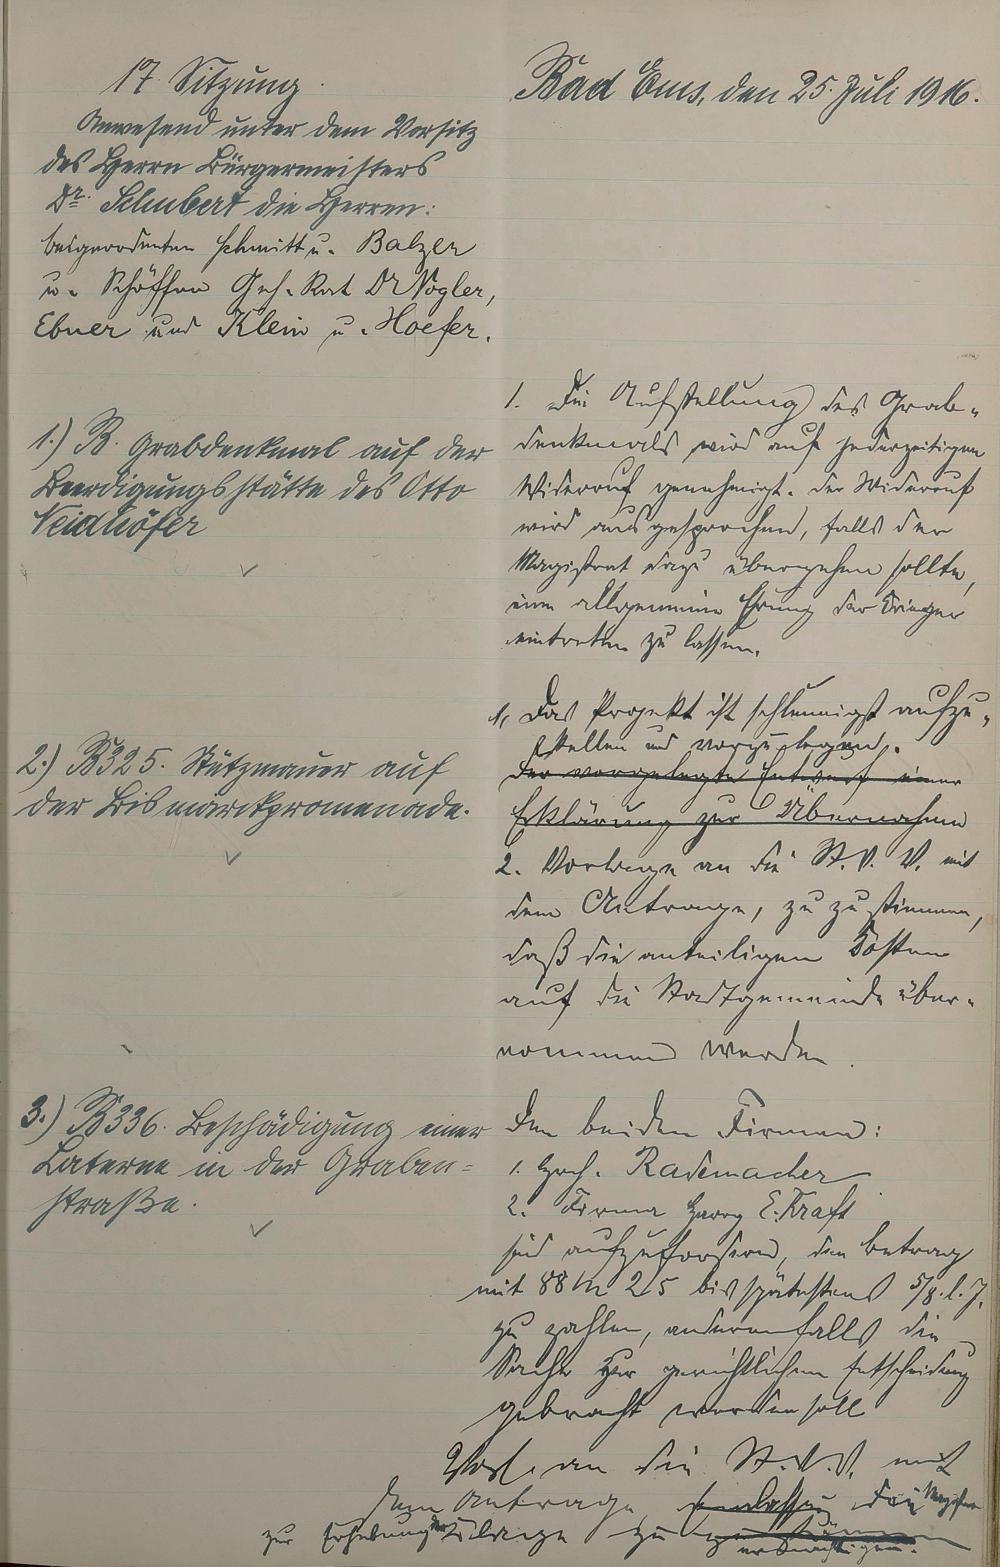 17. Sitzung.
Anwesend unter dem Vorsitz
des Herrn Bürgermeisters
Dr. Schubert die Herren:
beigeordneten Schmitt u. Balzer
u. Schöffen Geh. Rat Dr Vogler,
Ebner und Klein u. Hoefer.
Bad Ems, den 25. Juli 1916.
1.) B. Grabdenkmal auf der
Beerdigungsstätte des Otto
Neidhöfer
1. Die Aufstellung des Grab-
denkmals wird auf jederzeitigen
Widerruf genehmigt. Der Widerruf
wird ausgesprochen, falls der
Magistrat dazu übergehen sollte,
eine allgemeine Ehrung der Krieger
eintreten zu lassen.
2.) B325. Stützmauer auf
der Bismarckpromenade.
1. Das Projekt ist schleunigst aufzu-
stellen und vorzulegen.
Der vorgelegte Entwurf einer
Erklärung zur Übernahme
2. Vorlage an die St. V. V. mit
dem Antrage, zu zu stimmen,
daß die anteiligen Kosten
auf die Stadtgemeinde über-
nommen werden.
3.) B336. Beschädigung einer
Laterne in der Graben-
straße.
Den beiden Firmen:
1. Rademacher
2. Firma Harry E. Kraft
sind aufzufordern, den Betrag
mit 88 M 25 bis spätestens 5/8. l. J.
zu zahlen, anderenfalls die
Sache zur gerichtlichen Entscheidung
gebracht werden soll
Vorl. an die St. V. V. mit
dem Antrage den Magistrat
zur Erhebung der Klage zu
ermächtigen.